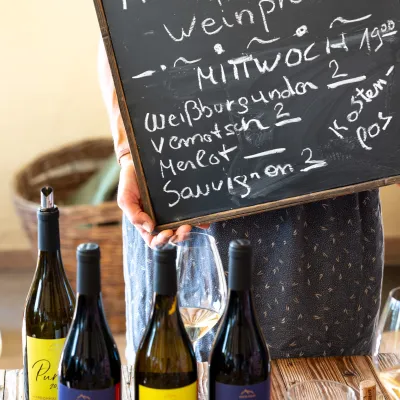 Weinpr
MITTWOCH 19⁰⁰
Weißburgunder 2
Vernatsch 2
Merlot —
Sauvignon 2
Kosten-
pos
Pun